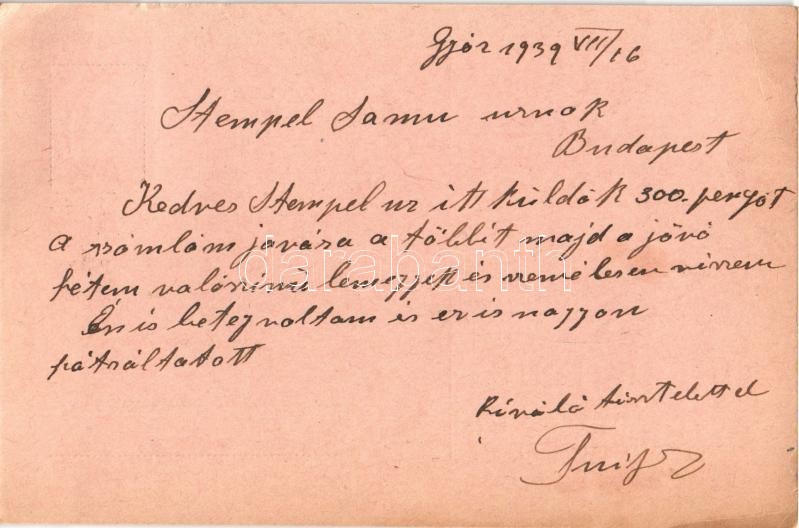 Győr 1939 VII/16
Stempel Samu urnak
Budapest
Kedves Stempel ur itt küldök 300.- pengőt
a számlám javára a többit majd a jövő
hétem valószinü lemegyek és személesen viszem
Én is beteg voltam és ez is nagyon
hátráltatott
Kíváló tisztelettel
darabanth